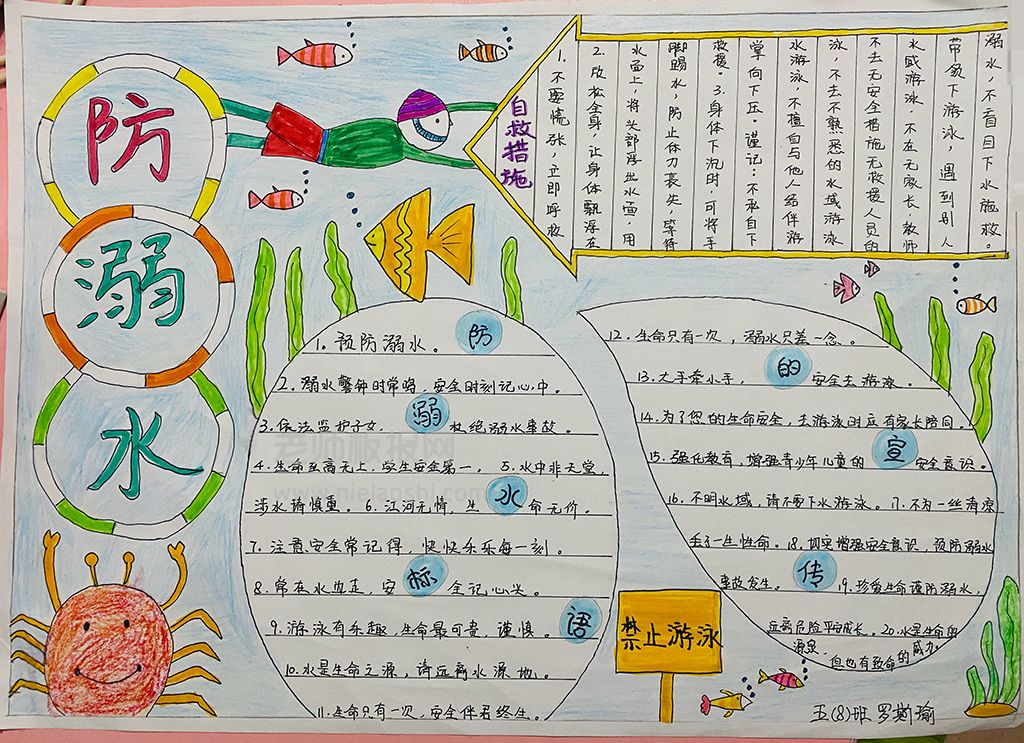 防
溺
水
自救措施
1. 不要慌张,立即呼救
2. 放松全身,让身体飘浮在
水面上,将头部浮出水面,用
脚踢水,防止体力丧失,等待
救援。3.身体下沉时,可将手
掌向下压。谨记:不私自下
水游泳,不擅自与他人结伴游
泳,不去不熟悉的水域游泳
不去无安全措施无救援人员的
水域游泳,不在无家长,教师
带领下游泳,遇到别人
溺水,不盲目下水施救。
防
溺
水
标
语
1. 预防溺水。
2. 溺水警钟时常鸣,安全时刻记心中。
3. 依法监护子女,杜绝溺水事故。
4. 生命至高无上,学生安全第一, 5. 水中非天堂,
涉水请慎重。6. 江河无情,生命无价。
7. 注意安全常记得,快快乐乐每一刻。
8. 常在水边走,安全记心头。
9. 游泳有乐趣,生命最可贵,谨慎。
10. 水是生命之源,请远离水源地。
11. 生命只有一次,安全伴君终生。
的
宣
传
12. 生命只有一次,溺水只差一念。
13. 大手牵小手,安全去游泳。
14. 为了您的生命安全,去游泳时应有家长陪同。
15. 强化教育,增强青少年儿童的安全意识。
16. 不明水域,请不要下水游泳。17. 不为一丝清凉
丢了一生性命。18. 切实增强安全意识,预防溺水
事故发生。19. 珍爱生命谨防溺水,
远离危险平安成长。20. 水是生命的
源泉,但也有致命的威力。
禁止游泳
五(8)班 罗斯瑜
老师板报网